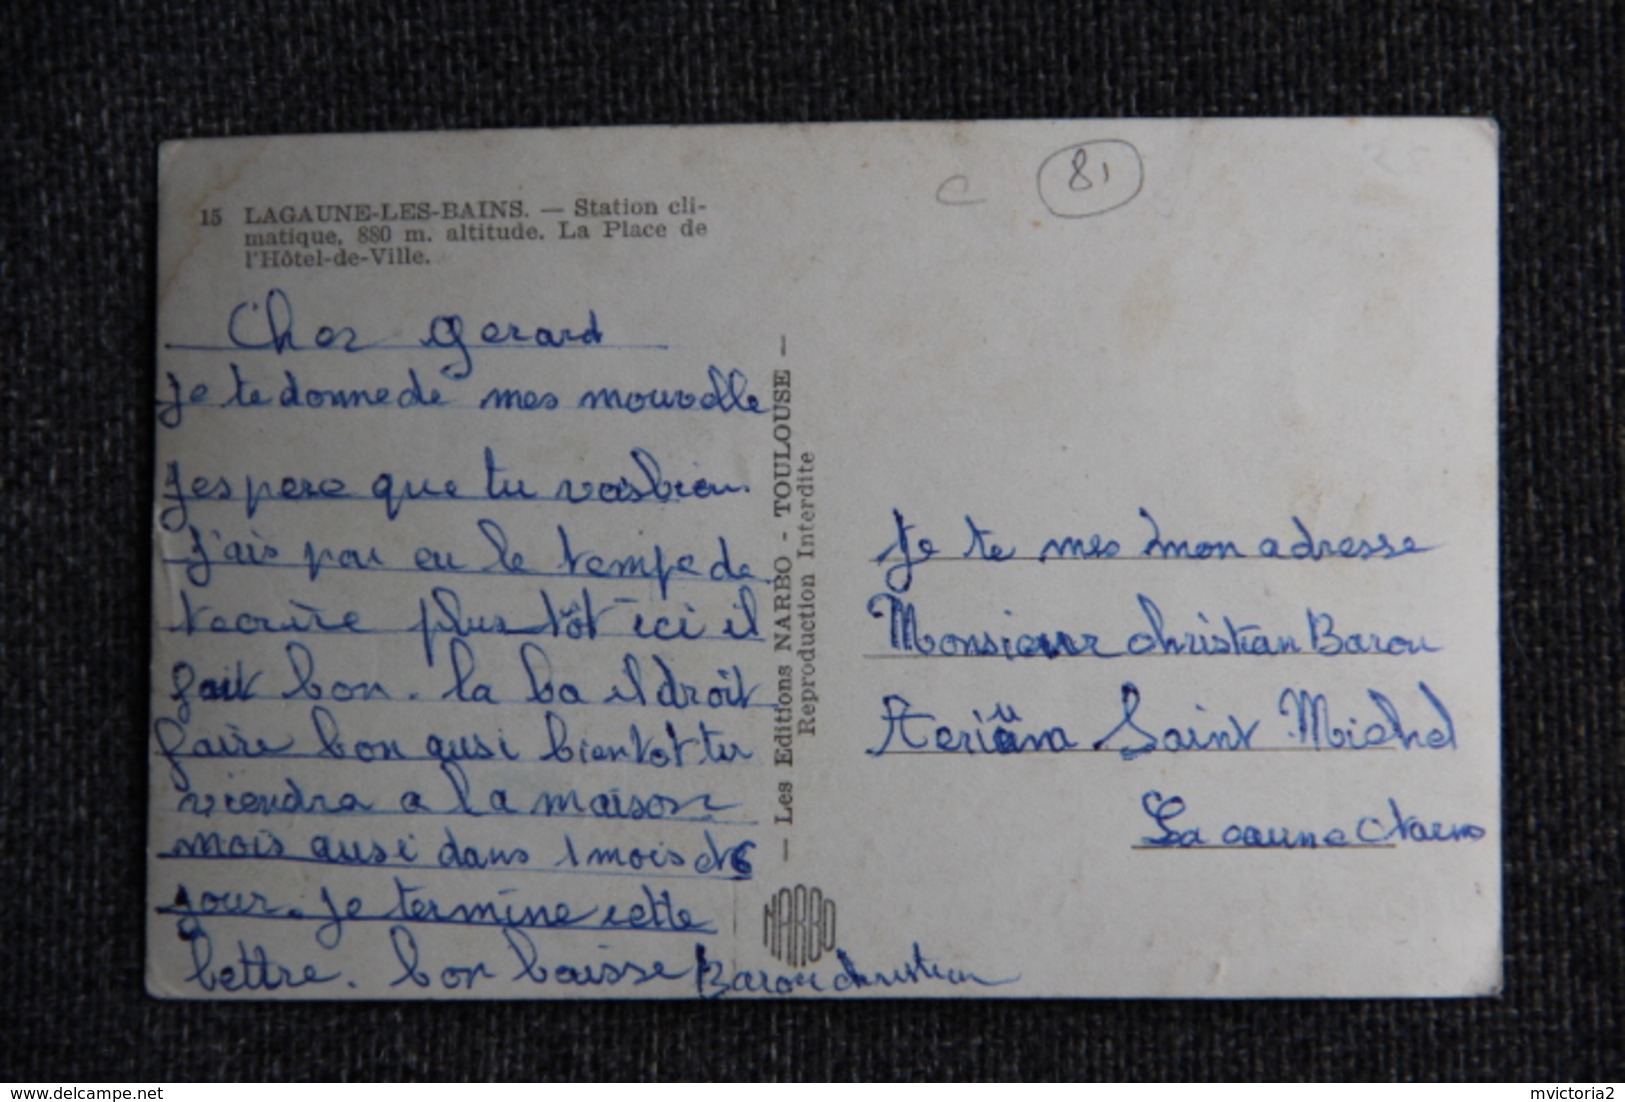 c 81
15 LAGAUNE-LES-BAINS. — Station cli-
matique, 880 m. altitude. La Place de
l'Hôtel-de-Ville.
Cher Gerard
je te donne de mes nouvelle
jespere que tu vas bien.
j'ais pas eu le temps de
tecrire plus tôt ici il
fait bon. la ba il droit
faire bon ausi bientot tu
viendra a la maison
mois ausi dans 1 mois de
jour. je termine cette
lettre. bon baisse Barou christian
— Les Editions NARBO - TOULOUSE —
Reproduction Interdite
NARBO
Je te mes mon adresse
Monsieur christian Barou
Aerium Saint Michel
La caune ctarns
https://www.delcampe.net
mvictoria2